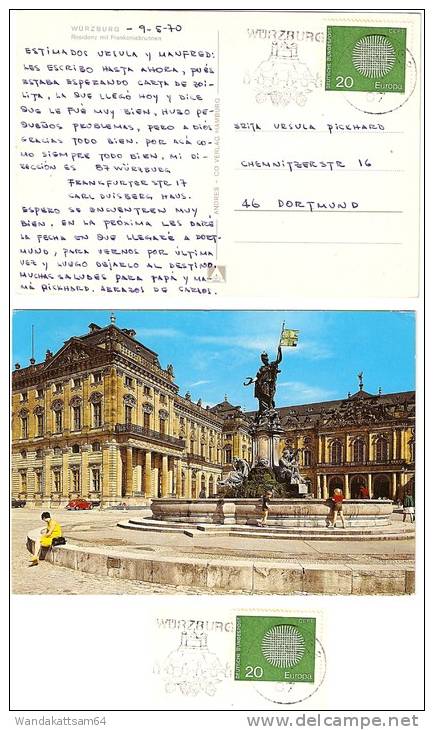 WÜRZBURG
Residenz mit Frankoniabrunnen
-9-5-70
ESTIMADOS URSULA Y MANFRED:
LES ESCRIBO HASTA AHORA, PUÉS
ESTABA ESPERANDO CARTA DE ZOI-
LITA, LA QUE LLEGÓ HOY Y DICE
QUE LE FUÉ MUY BIEN, HUBO PE-
QUEÑOS PROBLEMAS, PERO A DIOS
GRACIAS TODO BIEN. POR ACÁ CO-
MO SIEMPRE TODO BIEN. MI DI-
RECCIÓN ES 87 WÜRZBURG
FRANKFURTER STR 17
CARL DUISBERG HAUS.
ESPERO SE ENCUENTREN MUY
BIEN. EN LA PRÓXIMA LES DARÉ
LA FECHA EN QUE LLEGARÉ A DORT-
MUND, PARA VERNOS POR ÚLTIMA
VEZ Y LUEGO DEJARLO AL DESTINO.
MUCHAS SALUDES PARA PAPÁ Y MA-
MÁ PICKHARD. ABRAZOS DE CARLOS.
ANDRES + CO VERLAG HAMBURG
WÜRZBURG
DEUTSCHE BUNDESPOST
CEPT
20
Europa
87
URSULA PICKHARD
CHEMNITZERSTR 16
46 DORTMUND
WÜRZBURG
DEUTSCHE BUNDESPOST
CEPT
20
Europa
87
Wandakattsam64